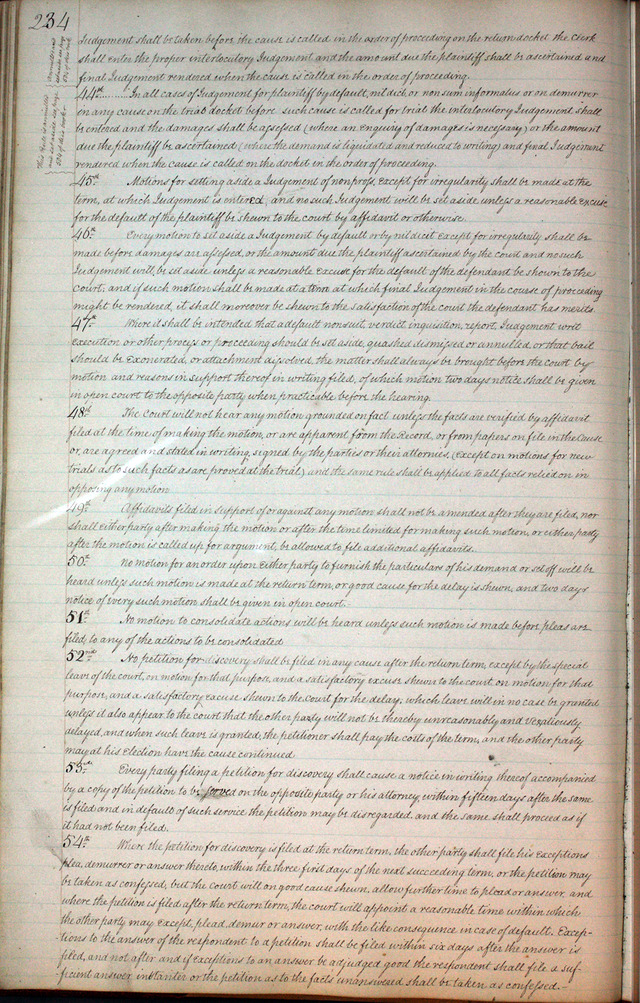 234
Judgement shall be taken before the cause is called in the order of proceeding on the return docket the Clerk
shall enter the proper interlocutory Judgement and the amount due the plaintiff shall be ascertained and
final Judgement rendered when the cause is called in the order of proceeding.
44th In all cases of Judgement for plaintiff by default, nil dicit or non sum informatus or on demurrer
in any cause on the trial docket before such cause is called for trial the interlocutory Judgement shall
be entered and the damages shall be assessed (where an Enquiry of damages is necessary) or the amount
due the plaintiff be ascertained (where the demand is liquidated and reduced to writing) and final Judgement
rendered when the cause is called on the docket in the order of proceeding.
45th Motions for setting aside a Judgement of nonpross, Except for irregularity shall be made at the
term, at which Judgement is entered, and no such Judgement will be set aside unless a reasonable Excuse
for the default of the plaintiff be shewn to the court by affidavit or otherwise.
46th Every motion to set aside a Judgement by default or by nil dicit Except for irregularity shall be
made before damages are assessed, or the amount due the plaintiff ascertained by the court and no such
Judgement will be set aside unless a reasonable Excuse for the default of the defendant be shown to the
court; and if such motion shall be made at a term at which final Judgement in the course of proceeding
might be rendered, it shall moreover be shewn to the satisfaction of the court the defendant has merits.
47th Where it shall be intended that a default nonsuit, verdict inquisition, report, Judgement writ
Execution or other process or proceeding should be set aside, quashed dismissed or annulled, or that bail
should be Exonerated, or attachment dissolved, the matter shall always be brought before the court by
motion and reasons in support thereof in writing filed, of which motion two days notice shall be given
in open court to the opposite party when practicable before the hearing.
48th The Court will not hear any motion grounded on fact unless the facts are verified by affidavit
filed at the time of making the motion, or are apparent from the Record, or from papers on file in the Cause
or, are agreed and stated in writing, signed by the parties or their attornies, (Except on motions for new
trials as to such facts as are proved at the trial) and the same rule shall be applied to all facts relied on in
opposing any motion
49th Affidavits filed in support of or against any motion shall not be amended after they are filed, nor
shall either party after making the motion or after the time limited for making such motion, or either party
after the motion is called up for argument, be allowed to file additional affidavits.
50th No motion for an order upon Either party to furnish the particulars of his demand or set off will be
heard unless such motion is made at the return term, or good cause for the delay is shewn, and two days
notice of every such motion shall be given in open court.
51st No motion to consolidate actions will be heard unless such motion is made before pleas are
filed to any of the actions to be consolidated
52nd No petition for discovery shall be filed in any cause after the return term, except by the special
leave of the court, on motion for that purpose, and a satisfactory excuse shewn to the court, on motion for that
purpose, and a satisfactory excuse shewn to the court for the delay; which leave will in no case be granted
unless it also appear to the court that the other party will not be thereby unreasonably and vexatiously
delayed, and when such leave is granted, the petitioner shall pay the costs of the term, and the other party
may at his Election have the cause continued
53rd Every party filing a petition for discovery shall cause a notice in writing thereof accompanied
by a copy of the petition to be served on the opposite party or his attorney, within fifteen days after the same
is filed and in default of such service the petition may be disregarded, and the same shall proceed as if
it had not been filed.
54th Where the petition for discovery is filed at the return term, the other party shall file his Exceptions
plea, demurrer or answer thereto, within the three first days of the next succeeding term, or the petition may
be taken as confessed, but the court will on good cause shewn, allow further time to plead or answer, and
where the petition is filed after the return term, the court will appoint a reasonable time within which
the other party may Except, plead, demur or answer, with the like consequence in case of default. Excep-
tions to the answer of the respondent to a petition shall be filed within six days after the answer is
filed, and not after and if exceptions to an answer be adjudged good the respondent shall file a suf-
ficient answer instanter or the petition as to the facts unanswered shall be taken as confessed.-